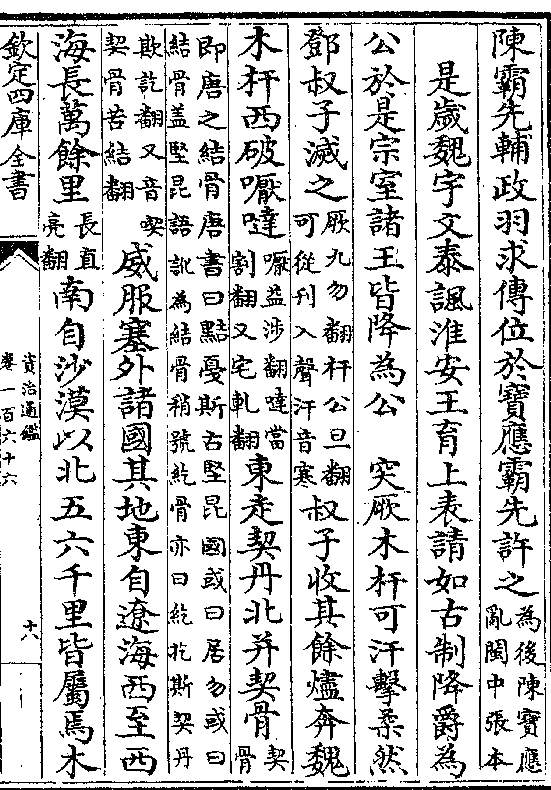 陳霸先輔政羽求傳位於寶應霸先許之為後陳寶應亂閩中張本
是歲魏宇文泰諷淮安王育上表請如古制降爵為
公於是宗室諸王皆降為公 突厥木杆可汗擊柔然
鄧叔子滅之厥九勿翻杆公旦翻可從刋入聲汗音寒叔子收其餘燼奔魏
木杆西破嚈噠嚈益涉翻噠當割翻又宅軋翻東走契丹北并契骨契骨
即唐之結骨唐書曰黠戛斯古堅昆國或曰居勿或曰
結骨盖堅昆語訛為結骨稍號紇骨亦曰紇扢斯契丹
欺訖翻又音喫契骨苦結翻威服塞外諸國其地東自遼海西至西
海長萬餘里長直亮翻南自沙漠以北五六千里皆屬焉木
欽定四庫全書
資治通鑑
卷一百六十六
十八